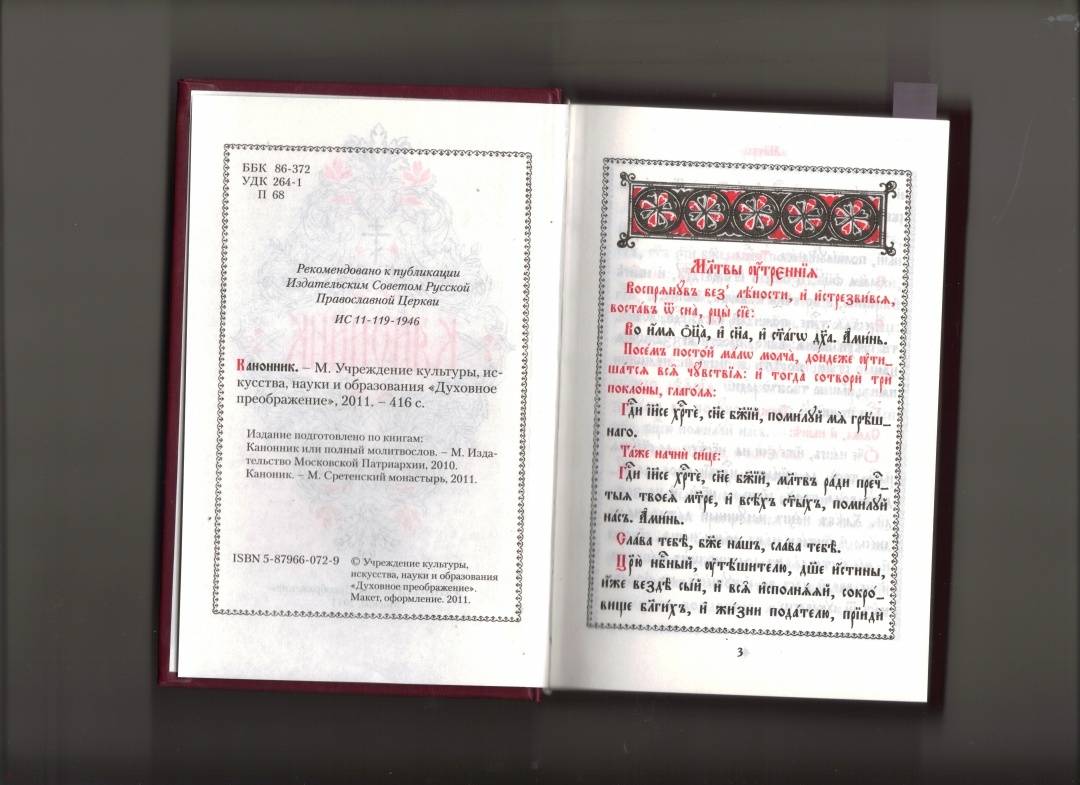 ББК 86-372
УДК 264-1
П 68
Рекомендовано к публикации
Издательским Советом Русской
Православной Церкви
ИС 11-119-1946
Канонник. – М. Учреждение культуры, ис-
кусства, науки и образования «Духовное
преображение», 2011. – 416 с.
Издание подготовлено по книгам:
Канонник или полный молитвослов. – М. Изда-
тельство Московской Патриархии, 2010.
Каноник. – М. Сретенский монастырь, 2011.
ISBN 5-87966-072-9
© Учреждение культуры,
искусства, науки и образования
«Духовное преображение».
Макет, оформление. 2011.
Мл҃твы ᲂу҆́трєннїѧ
Воспрѧ́нꙋвъ без̾ лѣ́ности, и҆ и҆стрезви́всѧ,
воста́въ ѿ сна̀, рцы̀ сїѐ:
Во и҆́мѧ ѻ҆ц҃а̀, и҆ сн҃а, и҆ ст҃а́гѡ дх҃а. А҆ми́нь.
Посе́мъ посто́й ма́лѡ мо́лча, до́ндеже ᲂу҆ти_
ша́тсѧ всѧ̑ чꙋ̑вствїѧ: и҆ тогда̀ сотворѝ трѝ
покло́ны, глаго́лѧ:
Гдⷭ҇и і҆и҃се хрⷭ҇тѐ, сн҃е бж҃їй, поми́лꙋй мѧ̀ грѣ́ш_
наго.
Та́же начнѝ си́це:
Гдⷭ҇и і҆и҃се хрⷭ҇тѐ, сн҃е бж҃їй, мл҃твъ ра́ди преч_
тыѧ твоеѧ̀ мт҃ре, и҆ всѣ́хъ ст҃ы́хъ, поми́лꙋй
на́съ. А҆ми́нь.
Сла́ва тебѣ̀, бж҃е на́шъ, сла́ва тебѣ̀.
Цр҃ю̀ нб҇ный, ᲂу҆тѣ́шителю, дш҃е и҆́стины,
и҆́же вездѣ̀ сы́й, и҆ всѧ̑ и҆сполнѧ́ѧй, сокро́_
вище бл҃ги́хъ, и҆ жи́зни пода́телю, прїидѝ
3